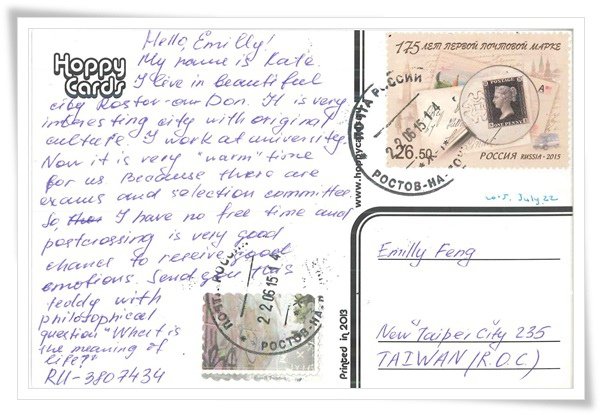 Hello, Emilly!
My name is Kate.
I live in beautiful
city Rostov-our Don. It is very
interesting city with original
culture. I work at university.
Now it is very "warm" time
for us because there are
exams and selection committee
So I have no free time and
postcrossing is very good
chance to receive good
emotions. Send you this
teddy with
philosophical
question "What is
the meaning of
life?"
RU-3807434
Hoppy
Cards
www.hoppycards
Printed in 2013
175 ЛЕТ ПЕРВОЙ ПОЧТОВОЙ МАРКЕ
A
ONE PENNY
26.50
РОССИЯ RUSSIA·2015
ПОЧТА РОССИИ
22.06.15 14
РОСТОВ-НА-
2015. July. 22
Emilly Feng
New Taipei City 235
TAIWAN (R.O.C)
22.06.15 14
РОСТОВ-НА-